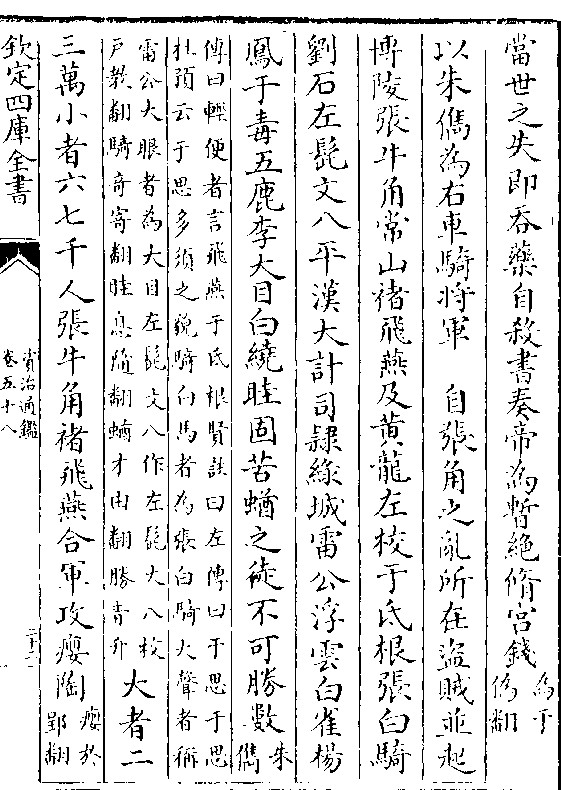 當世之失即吞藥自殺書奏帝為暫絶脩宫錢為于偽翻
以朱儁為右車騎將軍　自張角之亂所在盜賊並起
博陵張牛角常山褚飛燕及黄龍左校于氐根張白騎
劉石左髭文八平漢大計司隸緣城雷公浮雲白雀楊
鳳于毒五鹿李大目白繞眭固苦蝤之徒不可勝數朱儁
傳曰輕便者言飛燕于氐根賢註曰左傳曰于思于思
杜預云于思多須之貌騎白馬者為張白騎大聲者稱
雷公大眼者為大目左髭文八作左髭大八校
戸教翻騎奇寄翻眭息隨翻蝤才由翻勝音升
大者二
三萬小者六七千人張牛角褚飛燕合軍攻癭陶癭於郢翻
欽定四庫全書
資治通鑑
卷五十八